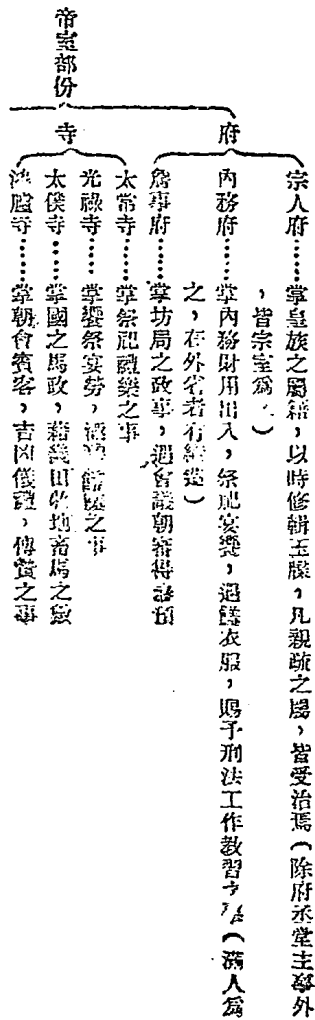 帝室部份
府
宗人府……掌皇族之屬籍，以時修輯玉牒，凡親疏之屬，皆受治焉（除府丞堂主事外
，皆宗室爲）
內務府……掌內務財用出入，祭祀宴饗，衣服，賜予刑法工作教習之（滿人爲
之，在外省者有織造）
詹事府……掌坊局之政事，遇會議朝審得參預
寺
太常寺……掌祭祀禮樂之事
光祿寺……掌饗祭宴勞，之事
太僕寺……掌國之馬政，籍畿甸牧地畜馬之數
鴻臚寺……掌朝會賓客，吉凶儀禮，傳贊之事